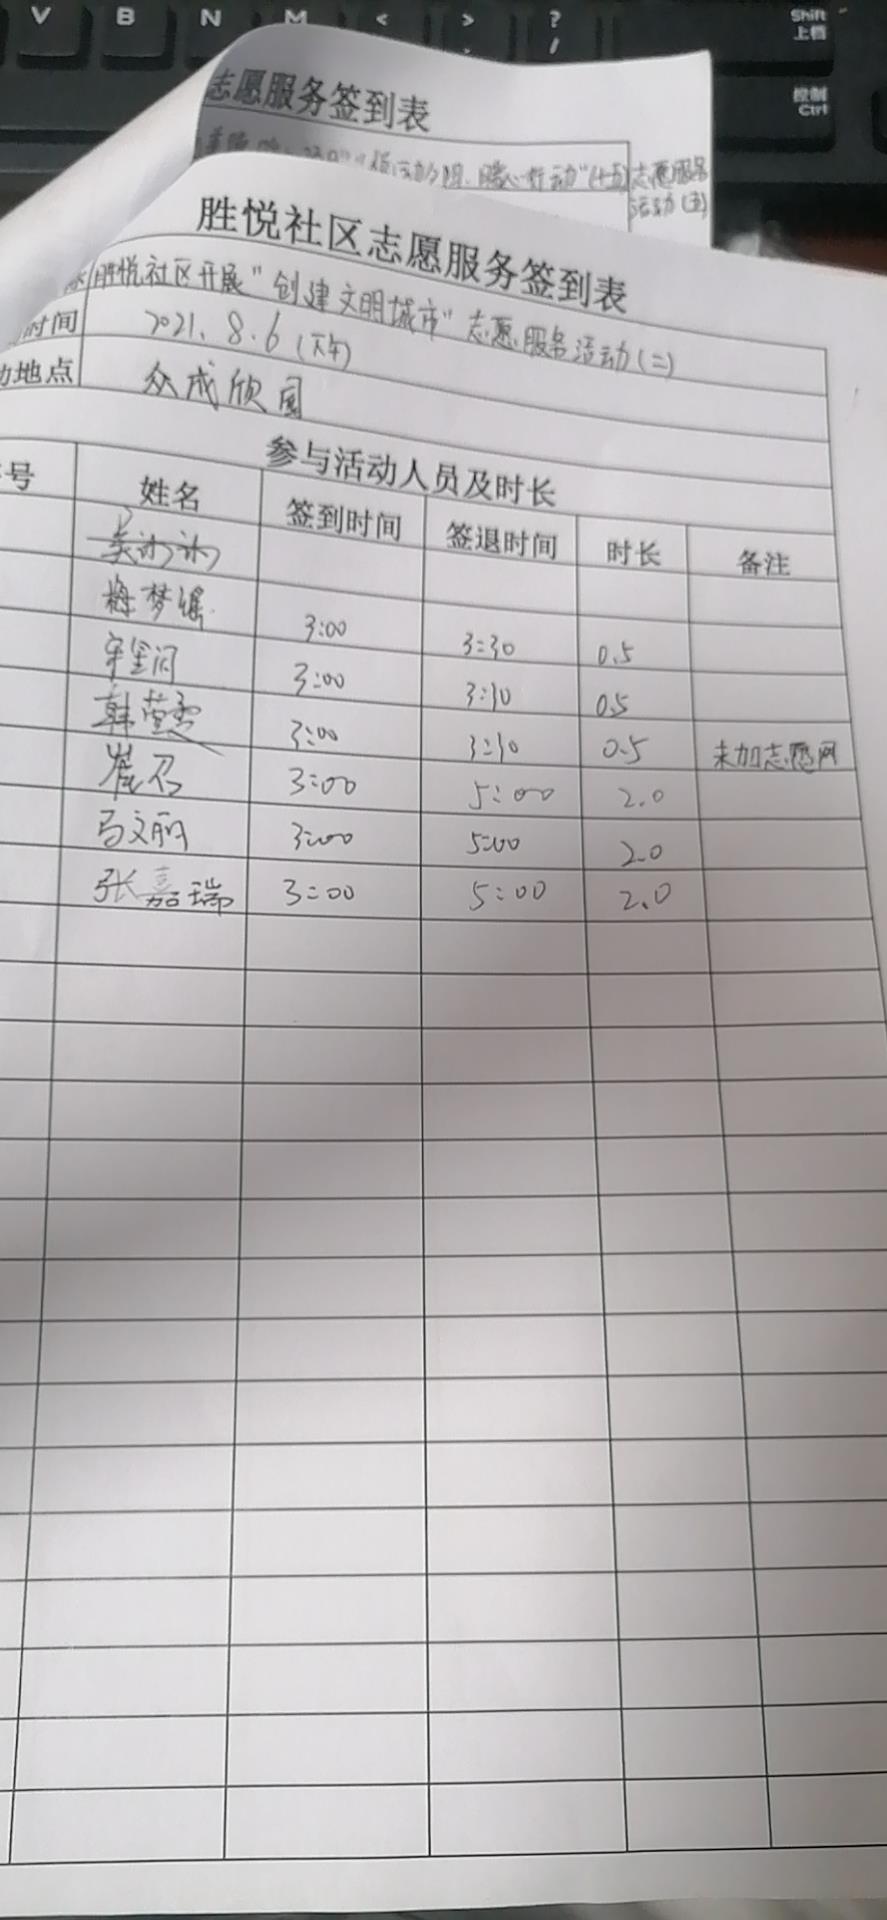 V B N M < > ? Shift
/ 上档
控制
Ctrl
志愿服务签到表
志愿服务
活动(五)
胜悦社区志愿服务签到表
胜悦社区开展"创建文明城市"志愿服务活动(二)
时间 2021.8.6(下午)
动地点 众成欣园
参与活动人员及时长
号 姓名 签到时间 签退时间 时长 备注
梅梦瑶 3:00 3:30 0.5
3:00 3:30 0.5
韩莹雯 3:00 3:30 0.5 未加志愿网
崔召 3:00 5:00 2.0
马文丽 3:00 5:00 2.0
张嘉瑞 3:00 5:00 2.0